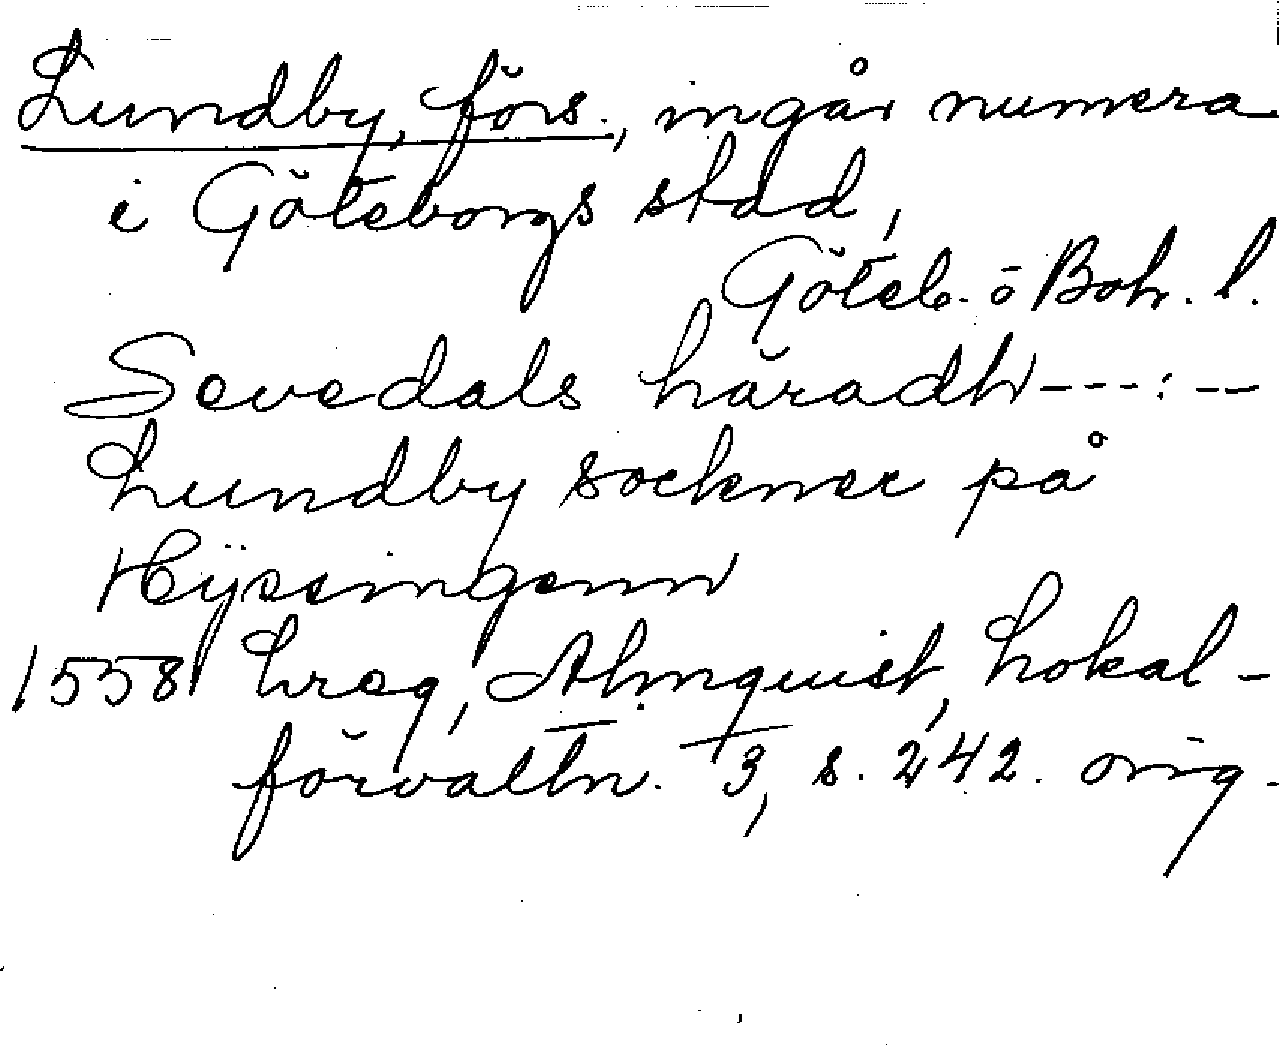 Lundby, förs., ingår numera
i Göteborgs stad,
Göteb. o Boh. l.
Sevedals häradh ---:--
Lundby sockner på
Hÿssingenn
1558 Lreg, Almquist, Lokal-
förvaltn. 3, s. 242. orig.